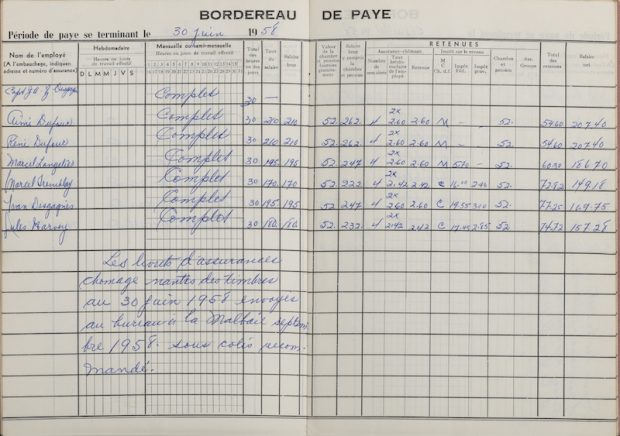 BORDEREAU DE PAYE
Période de paye se terminant le 30 juin 1958
Nom de l'employé
(A l'embauchage, indiquer adresse et numéro d'assurance)
Hebdomadaire
Heures ou jours de travail effectif
D L M M J V S
Mensuelle ou semi-mensuelle
Heures ou jours de travail effectif
Total des heures ou des jours
Taux du salaire
Salaire brut
Valeur de la chambre et pension
Salaire brut y compris la chambre et pension
RETENUES
Assurance-chômage
Impôt sur le revenu
Nombre de semaines
Retenue
M C
Impôt féd.
Impôt prov.
Chambre et pension
Ass. Groupe
Total des retenues
Salaire net
Complet 30 —
Aimé Dufour Complet 30 210 210 52. 262. 4 2x 2.60 2.60 M - - 52. 54.60 207.40
René Dufour Complet 30 210 210 52. 262. 4 2x 2.60 2.60 M - - 52. 54.60 207.40
Marcel Complet 30 195 195 52. 247. 4 2x 2.60 2.60 M 5.70 - 52. 60.30 186.70
Marcel Tremblay Complet 30 170 170 52. 222. 4 2x 2.42 2.42 C 16.00 2.40 52. 72.82 149.18
Yvan Desgagnés Complet 30 195 195 52. 247. 4 2x 2.60 2.60 C 19.55 3.10 52. 77.25 169.75
Jules Harvey Complet 30 180. 180. 52. 232. 4 2x 2.42 2.42 C 17.45 2.85 52. 74.72 157.28
Les livrets d'assurances
chomage nantes des timbres
au 30 juin 1958 envoyés
au bureau à la Malbaie septem
bre 1958. sous colis recom
mandé.